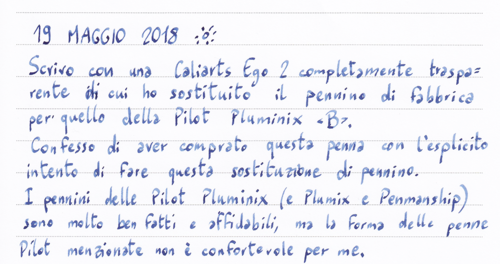 19 MAGGIO 2018
Scrivo con una Caliarts Ego 2 completamente traspa=
rente di cui ho sostituito il pennino di fabbrica
per quello della Pilot Pluminix «B».
Confesso di aver comprato questa penna con l'esplicito
intento di fare questa sostituzione di pennino.
I pennini delle Pilot Pluminix (e Plumix e Penmanship)
sono molto ben fatti e affidabili, ma la forma delle penne
Pilot menzionate non è confortevole per me.